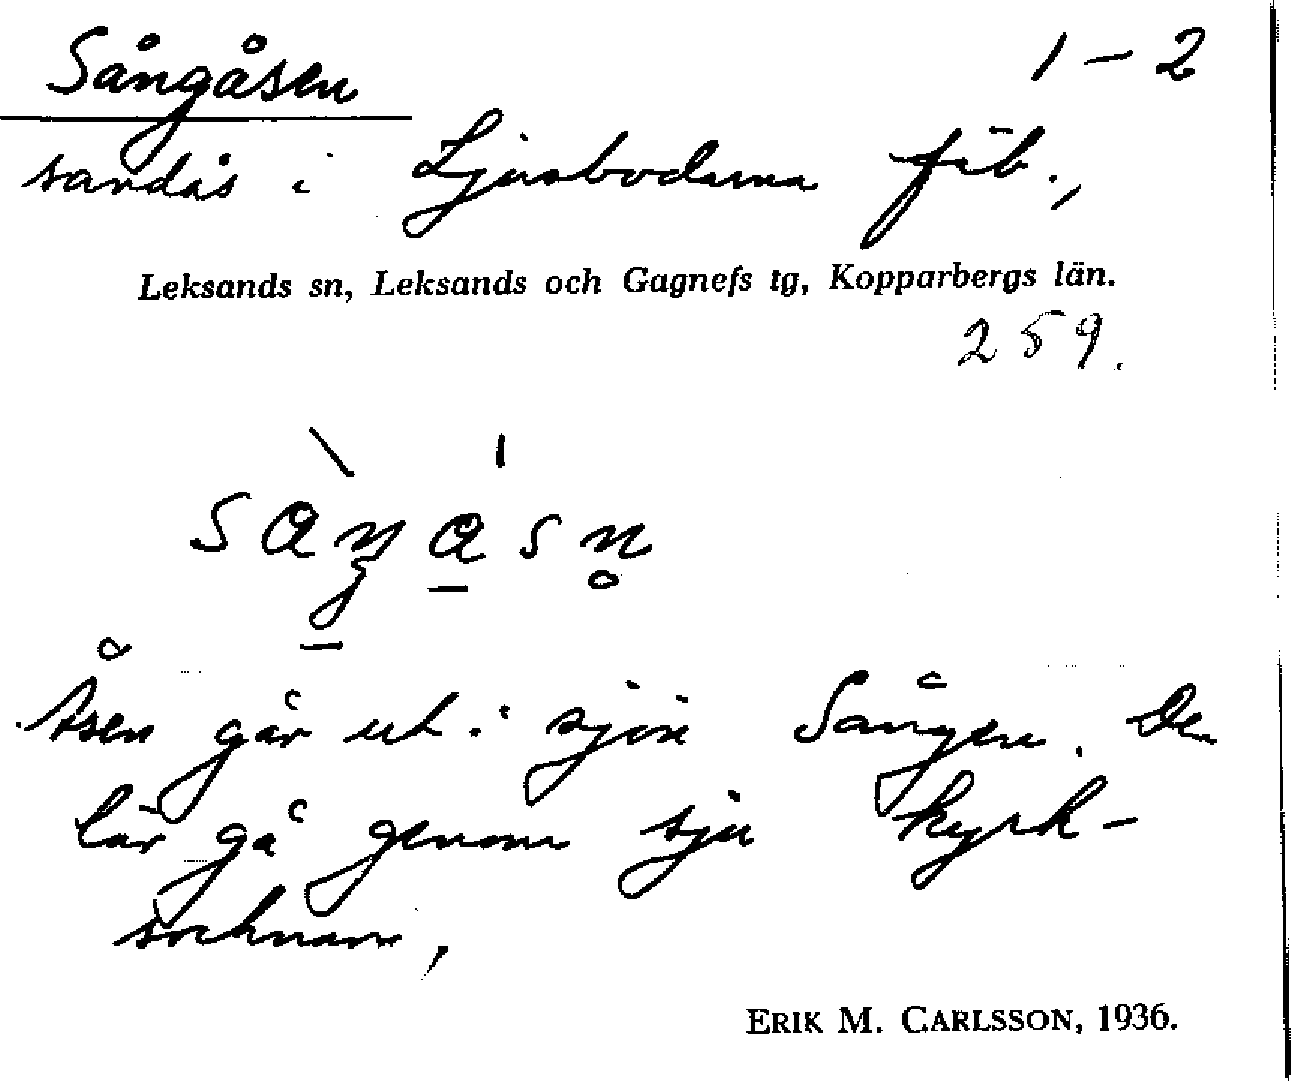 Sångåsen 1-2
sandås i Ljusbodarna fäb.,
Leksands sn, Leksands och Gagnefs tg, Kopparbergs län.
259.
Åsen går ut i sjön Sången. De
lär gå genom sju kyrk-
socknar,
ERIK M. CARLSSON, 1936.